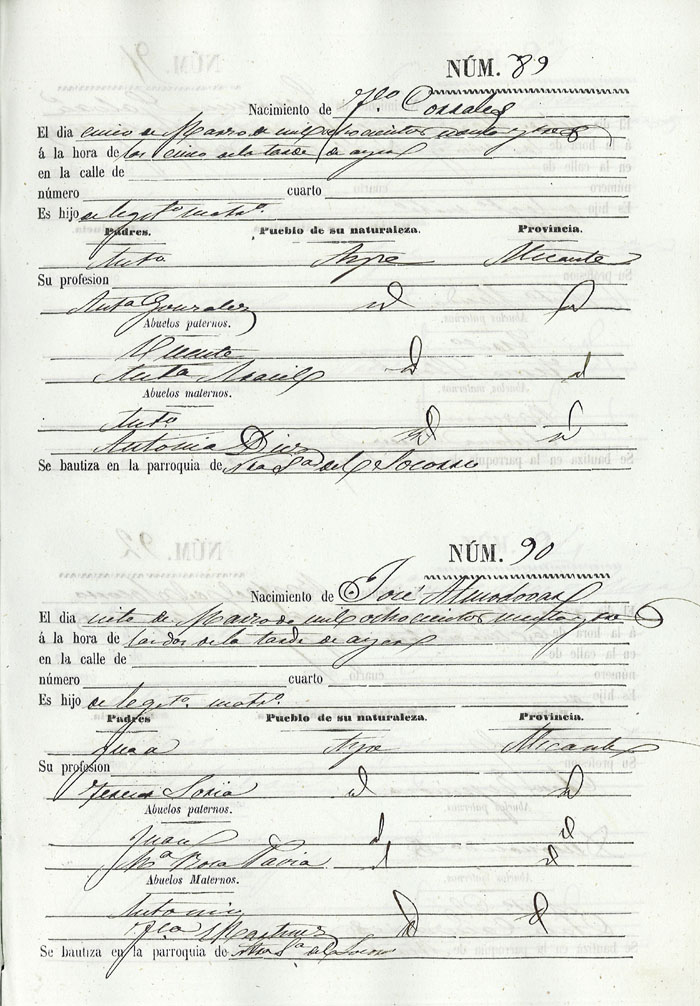 NÚM. 89
Nacimiento de Fco Corrales
El dia cinco de Marzo de mil ochocientos
á la hora de las cinco de la tarde de ayer
en la calle de
número cuarto
Es hijo de legit.º matr.º
Padres. Pueblo de su naturaleza. Provincia.
Anto Aspe Alicante
Su profesion
Anta Gonzalez id id
Abuelos paternos.
Vicente id
Anta id
Abuelos maternos.
Anto
Antonia Diez id id
Se bautiza en la parroquia de Ntra Sra del Socorro
NÚM. 90
Nacimiento de José Almodovar
El dia siete de Marzo de mil ochocientos
á la hora de las dos de la tarde de ayer
en la calle de
número cuarto
Es hijo de legit.º matr.º
Padres Pueblo de su naturaleza. Provincia.
Juan Aspe Alicante
Su profesion
Teresa Soria id id
Abuelos paternos.
Juan id id
Mª Rosa Pavia id id
Abuelos Maternos.
Antonio
Fca Martinez id id
Se bautiza en la parroquia de Ntra Sra del Socorro